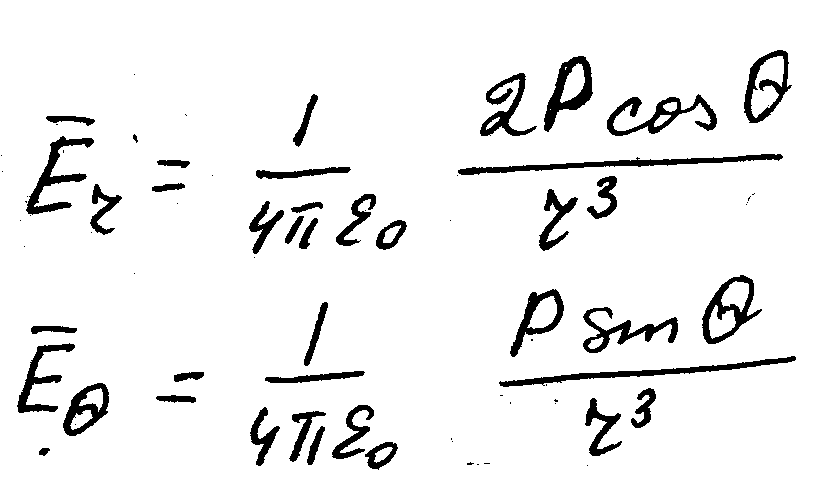 Ē_r = 1/(4πε₀) 2P cos θ/r³
Ē_θ = 1/(4πε₀) P sin θ/r³